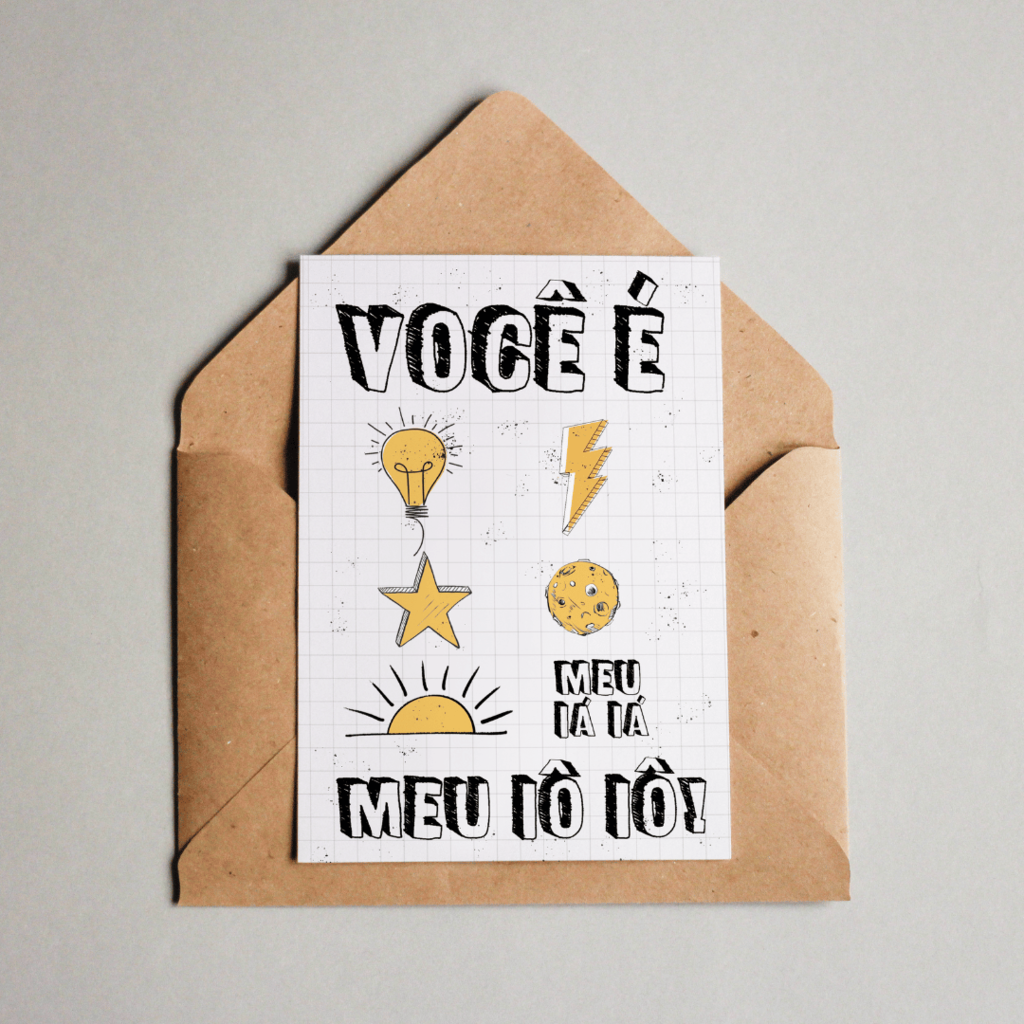 VOCÊ É
MEU
IÁ IÁ
MEU IÔ IÔ!